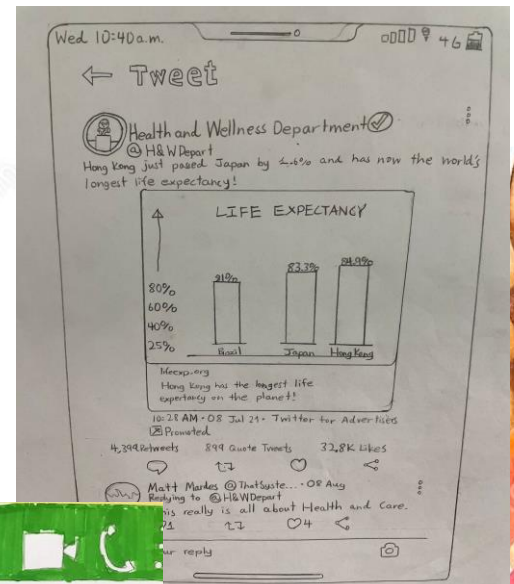 Wed 10:40a.m. 4G
← Tweet
Health and Wellness Department
@ H&WDepart
Hong Kong just pased Japan by and has now the world's
longest life expectancy!
LIFE EXPECTANCY
83.3% 84.9%
80%
60%
40%
25%
Japan Hong Kong
Hong Kong has the longest life
expertancy on the planet!
10:28 AM · 08 Jul 21 · Twitter for Advertisers
Promoted
4,399 Retweets 899 Quote Tweets 32,8K Likes
Matt Mardes @ThatSyste... · 08 Aug
Replying to @H&WDepart
his really is all about Health and Care.
4
ur reply